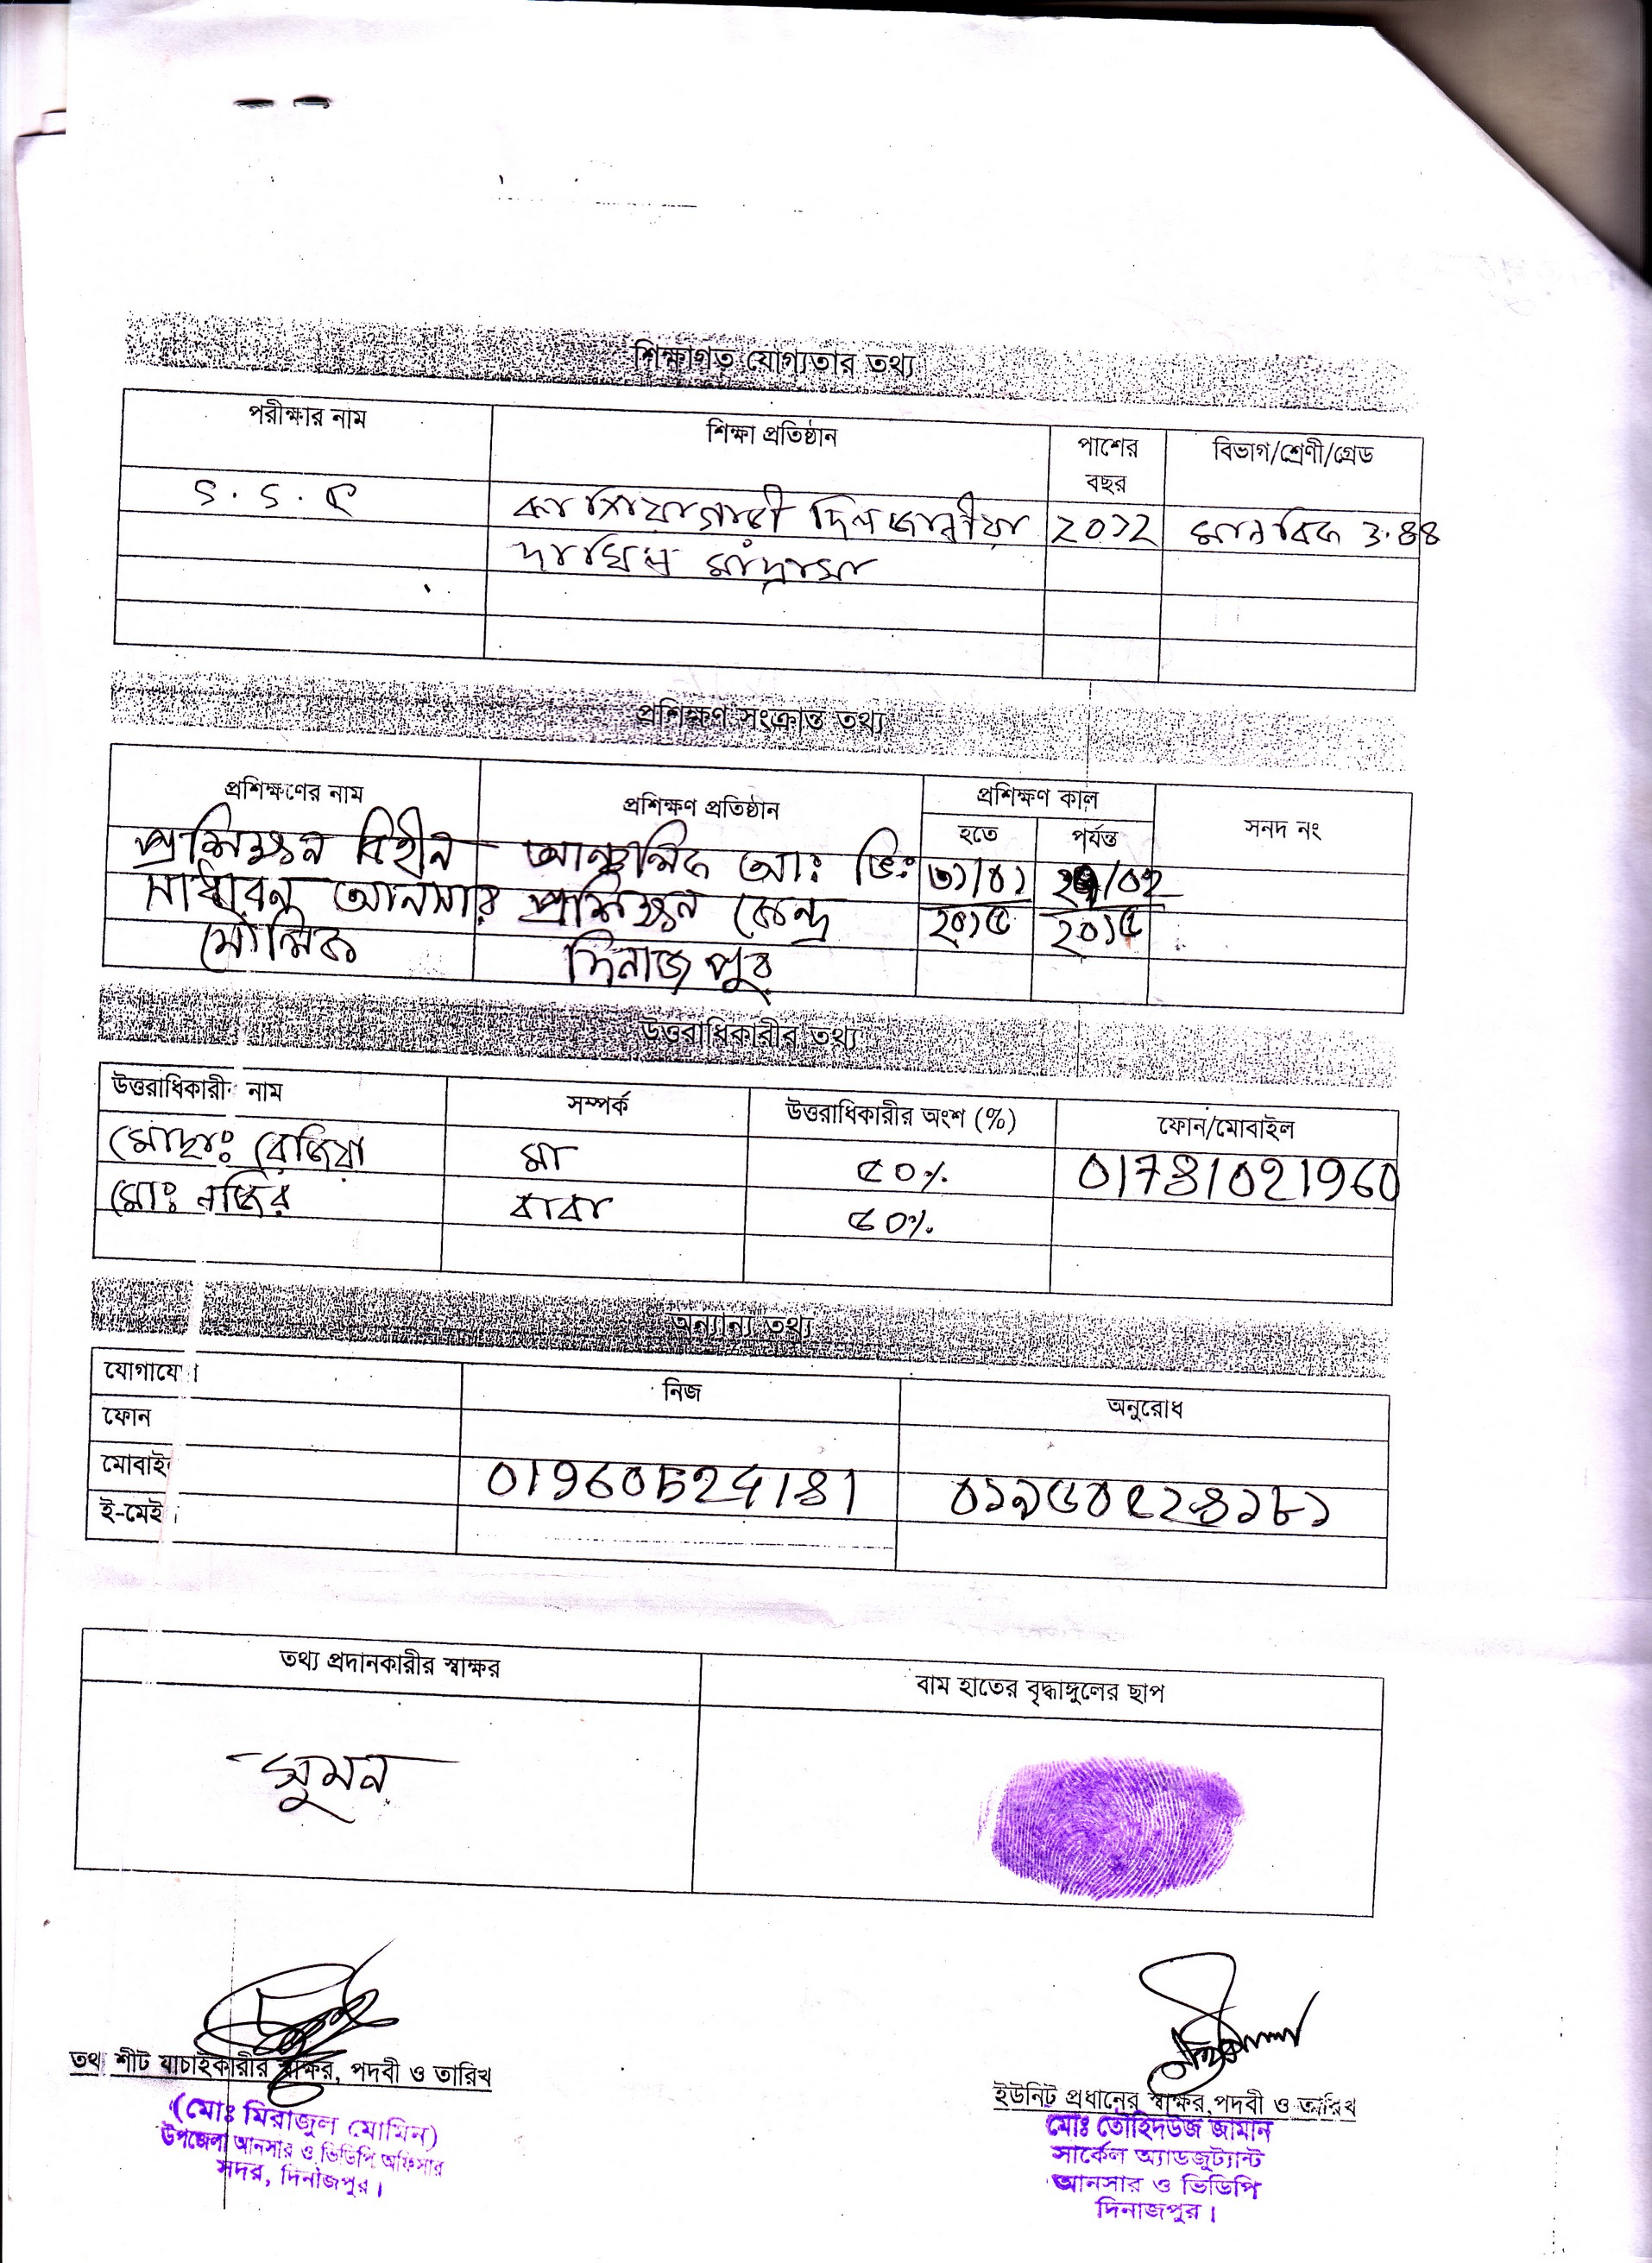 শিক্ষাগত যোগ্যতার তথ্য
পরীক্ষার নাম শিক্ষা প্রতিষ্ঠান পাশের বছর বিভাগ/শ্রেণী/গ্রেড
দিল 2012 মানবিক 3.88
দাখিল মাদ্রাসা
প্রশিক্ষণ সংক্রান্ত তথ্য
প্রশিক্ষণের নাম প্রশিক্ষণ প্রতিষ্ঠান প্রশিক্ষণ কাল সনদ নং
হতে পর্যন্ত
প্রশিক্ষন বিহীন আঃ ভিঃ ৩১/০১
সাধারন আনসার প্রশিক্ষন কেন্দ্র ২০১৫ ২০১৫
মৌলিক দিনাজপুর
উত্তরাধিকারীর তথ্য
উত্তরাধিকারী নাম সম্পর্ক উত্তরাধিকারীর অংশ (%) ফোন/মোবাইল
মোছাঃ রেজিয়া মা ৫০% 01781021960
মোঃ নজির বাবা ৫০%
অন্যান্য তথ্য
যোগাযো নিজ অনুরোধ
ফোন
মোবাই 01960524181 ০১৯৬০৫২৪১৮১
ই-মেই
তথ্য প্রদানকারীর স্বাক্ষর বাম হাতের বৃদ্ধাঙ্গুলের ছাপ
সুমন
তথ্য শীট যাচাইকারীর স্বাক্ষর, পদবী ও তারিখ
(মোঃ মিরাজুল মোমিন)
উপজেলা আনসার ও ভিডিপি অফিসার
সদর, দিনাজপুর।
ইউনিট প্রধানের স্বাক্ষর,পদবী ও তারিখ
মোঃ তৌহিদউজ জামান
সার্কেল অ্যাডজুট্যান্ট
আনসার ও ভিডিপি
দিনাজপুর।